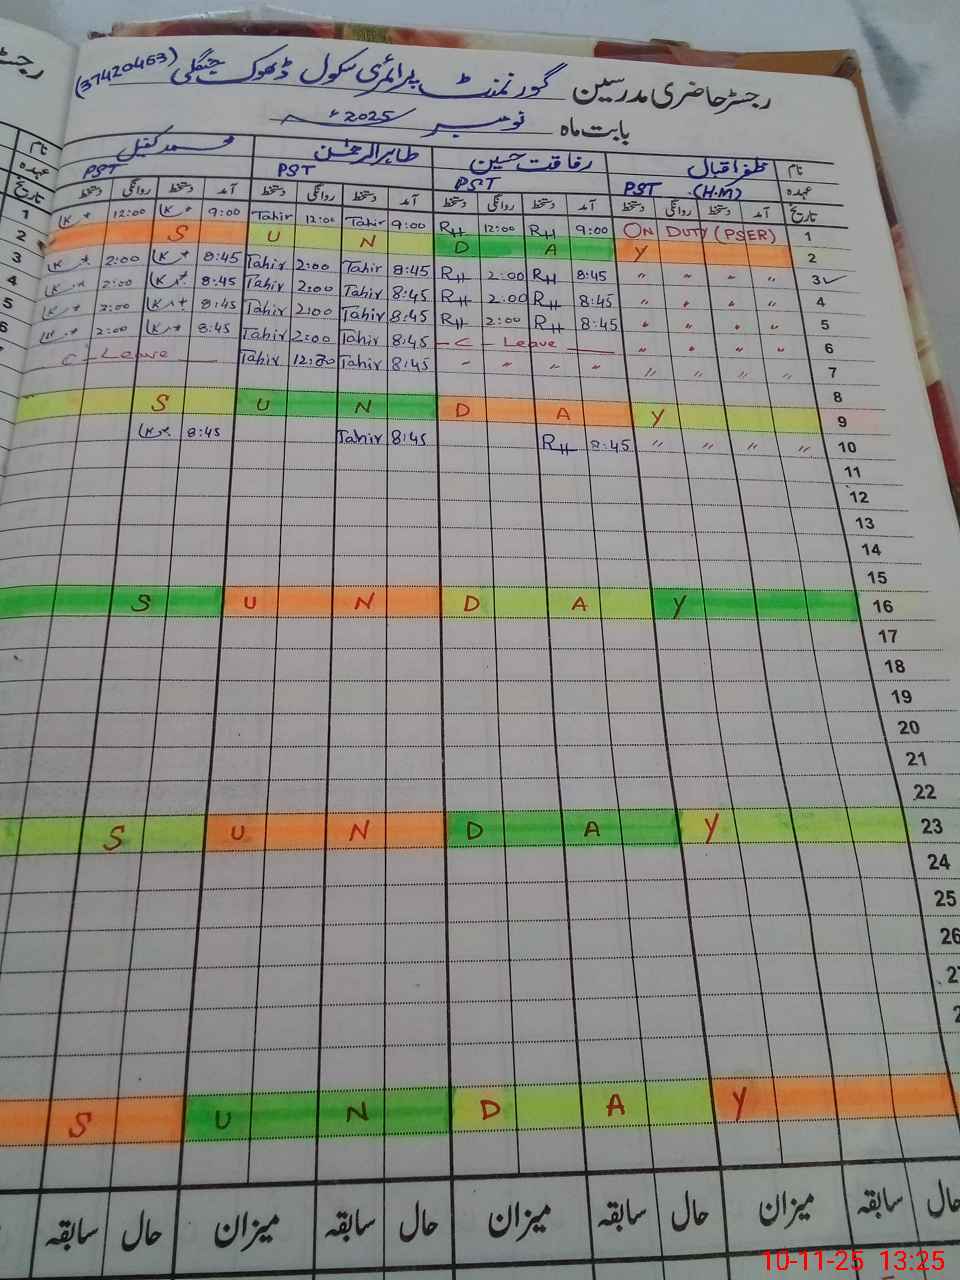 رجسٹر حاضری مدرسین گورنمنٹ پرائمری سکول ڈھوک جنگلی (37420463)
بابت ماہ نومبر 2025ء
نام ظفر اقبال رفاقت حسین طاہر الرحمٰن محمد کفیل
عہدہ PST (H.M) PST PST PST
تاریخ آمد دستخط روانگی دستخط آمد دستخط روانگی دستخط آمد دستخط روانگی دستخط آمد دستخط روانگی دستخط
12:00 9:00 Tahir 12:00 Tahir 9:00 RH 12:00 RH 9:00 ON DUTY (PSER) 1
S U N D A Y 2
2:00 8:45 Tahir 2:00 Tahir 8:45 RH 2:00 RH 8:45 " " " " 3
2:00 8:45 Tahir 2:00 Tahir 8:45 RH 2:00 RH 8:45 " " " " 4
2:00 8:45 Tahir 2:00 Tahir 8:45 RH 2:00 RH 8:45 " " " " 5
2:00 8:45 Tahir 2:00 Tahir 8:45 - C - Leave " " " " 6
C - Leave Tahir 12:30 Tahir 8:45 " " " " " " " " 7
8
S U N D A Y 9
8:45 Tahir 8:45 RH 8:45 " " " " 10
11
12
13
14
15
S U N D A Y 16
17
18
19
20
21
22
S U N D A Y 23
24
25
26
S U N D A Y
حال سابقہ میزان حال سابقہ میزان حال سابقہ میزان حال سابقہ
10-11-25 13:25